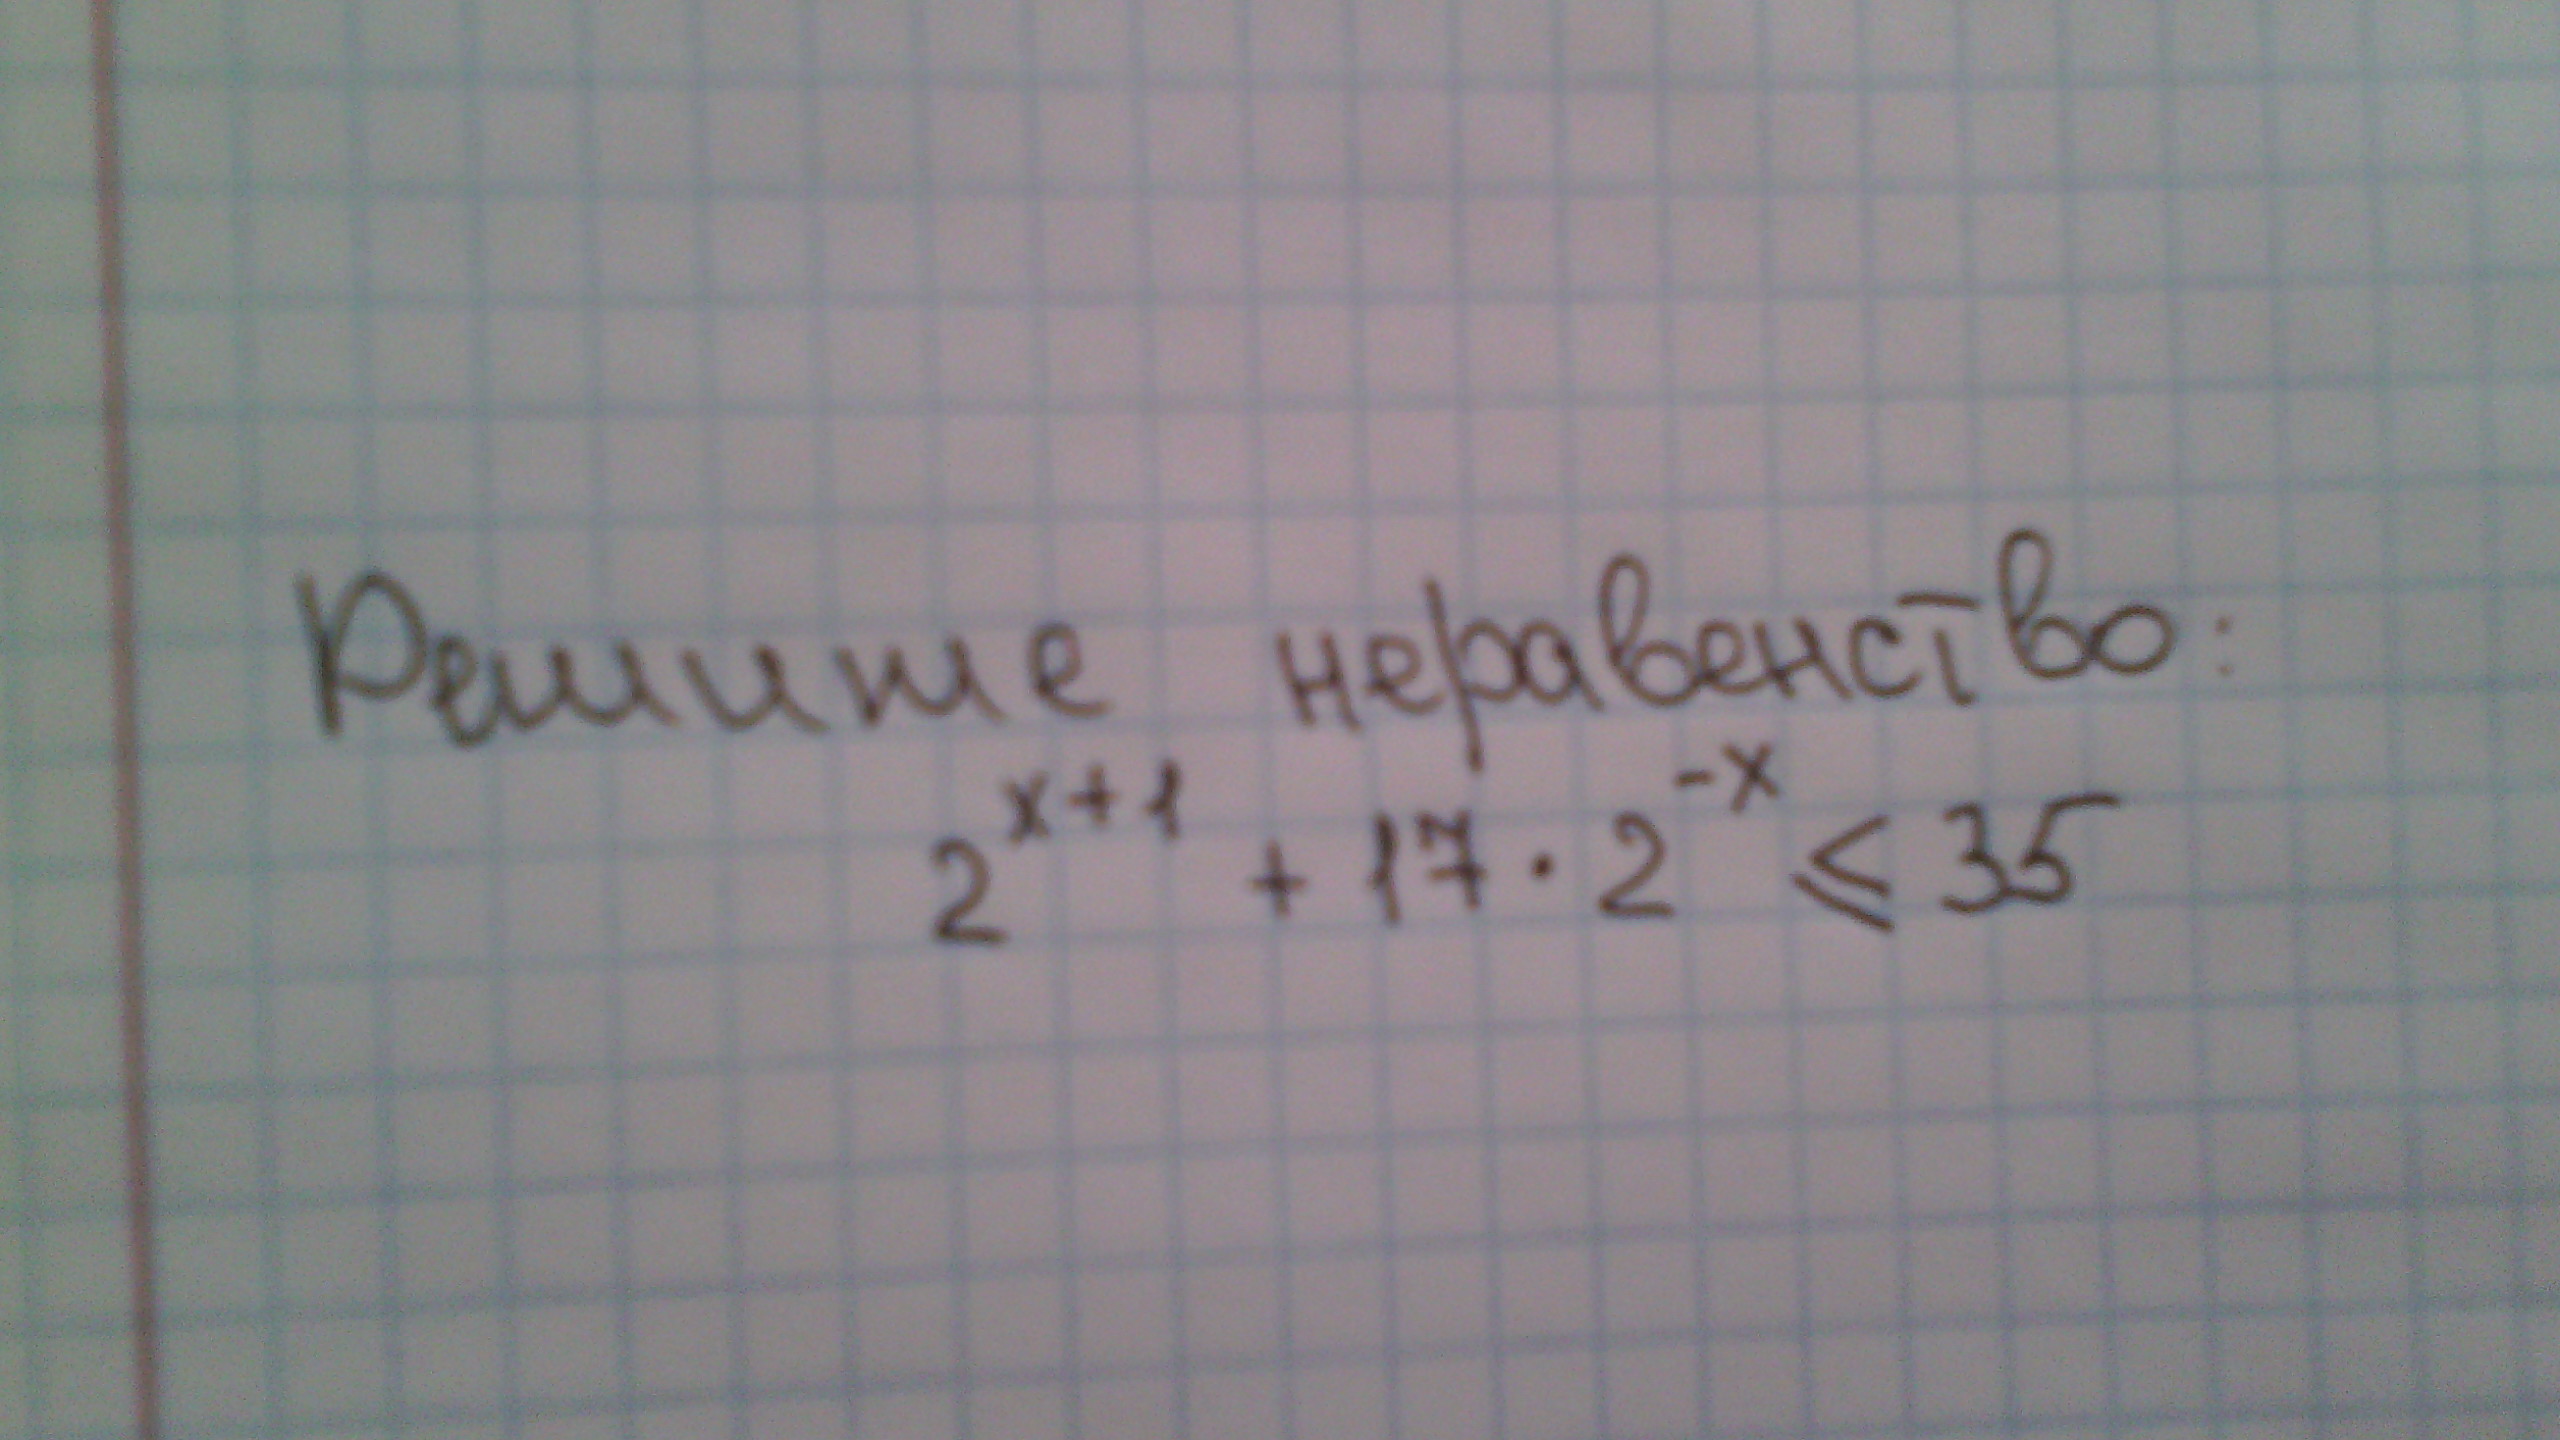 Решите неравенство:
2^{x+1} + 17 · 2^{-x} ⩽ 35